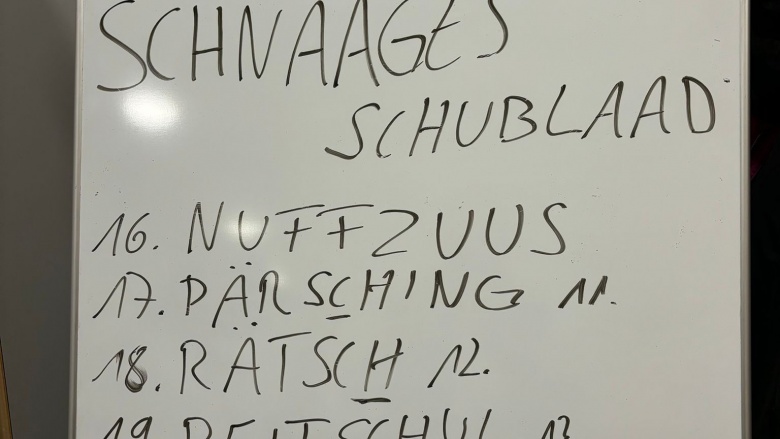 SCHNAAGES
SCHUBLAAD
16. NUFFZUUS
17. PÄRSCHING 11.
18. RÄTSCH 12.
19. REITSCHUL 13